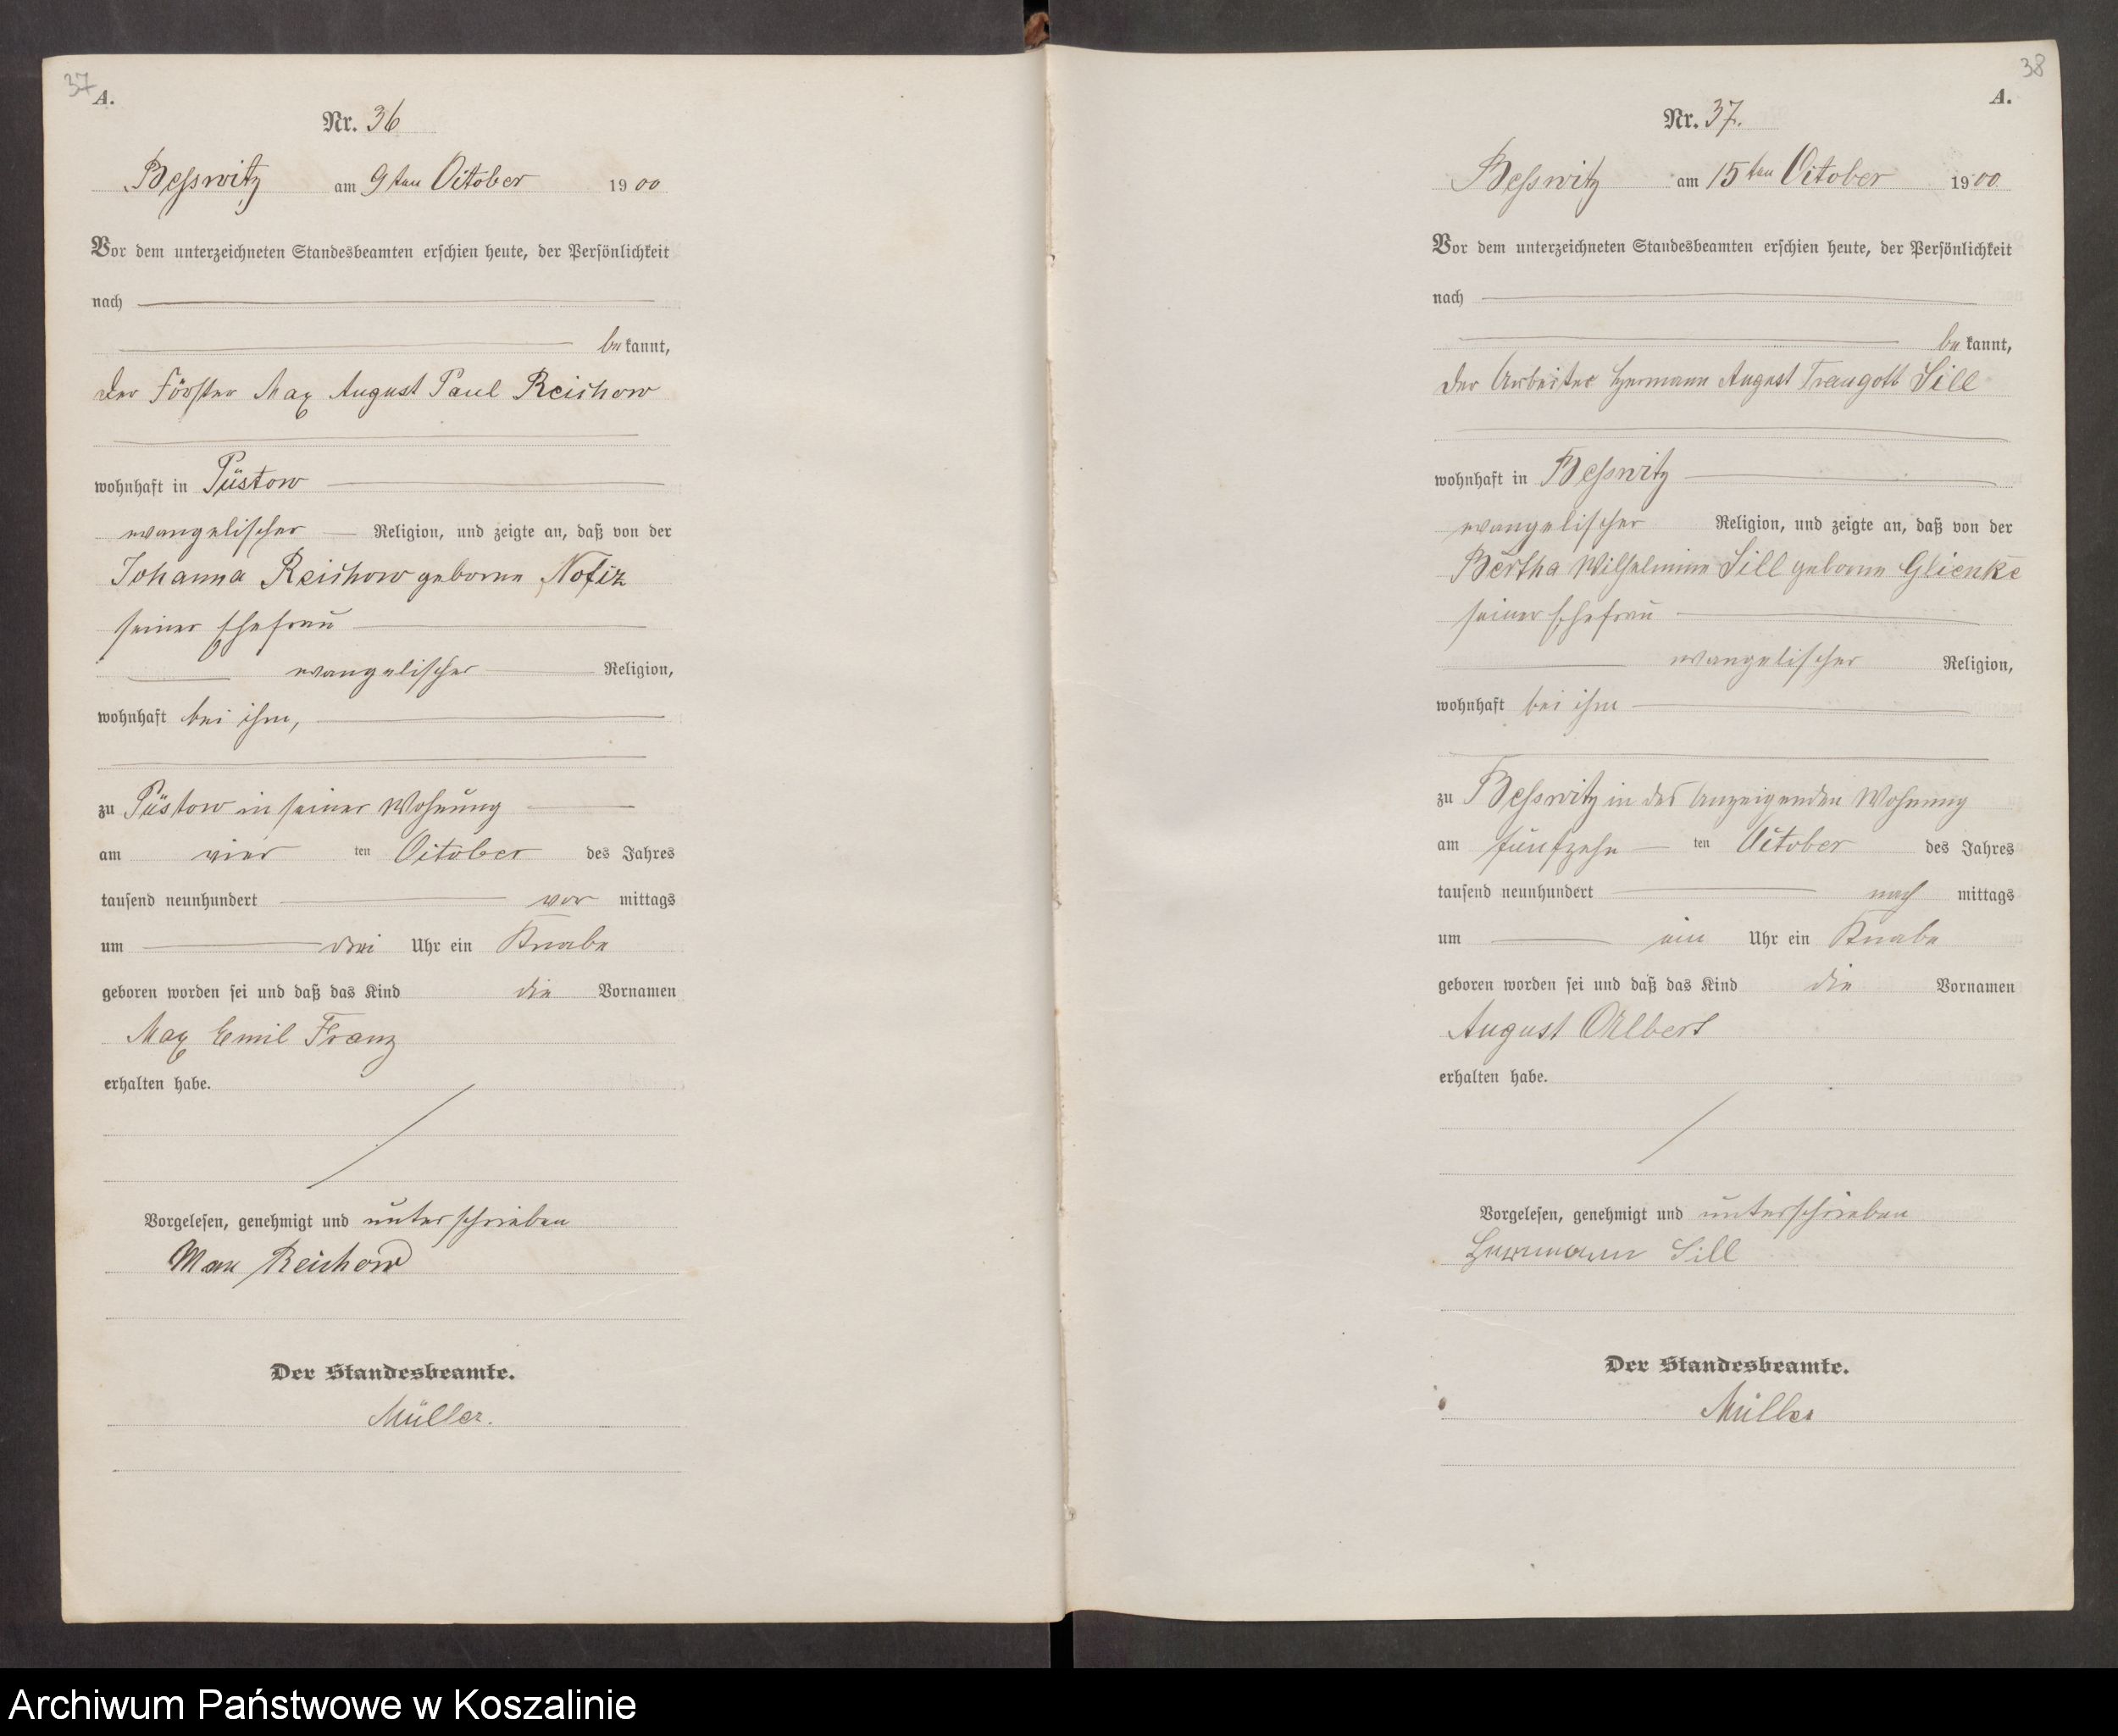 37
A.
Nr. 36
Beßwitz am 9ten October 1900
Vor dem unterzeichneten Standesbeamten erschien heute, der Persönlichkeit
nach
bekannt,
der Förster Max August Paul Reichow
wohnhaft in Püstow
evangelischer Religion, und zeigte an, daß von der
Johanna Reichow geborne Notiz
seiner Ehefrau
evangelischer Religion,
wohnhaft bei ihm,
zu Püstow in seiner Wohnung
am vier ten October des Jahres
tausend neunhundert vor mittags
um drei Uhr ein Knabe
geboren worden sei und daß das Kind die Vornamen
Max Emil Franz
erhalten habe.
Vorgelesen, genehmigt und unterschrieben
Max Reichow
Der Standesbeamte.
Müller.
38
A.
Nr. 37.
Beßwitz am 15ten October 1900
Vor dem unterzeichneten Standesbeamten erschien heute, der Persönlichkeit
nach
bekannt,
der Arbeiter Hermann August Traugott Sill
wohnhaft in Beßwitz
evangelischer Religion, und zeigte an, daß von der
Bertha Wilhelmine Sill geborne Glienke
seiner Ehefrau
evangelischer Religion,
wohnhaft bei ihm
zu Beßwitz in des Anzeigenden Wohnung
am fünfzehn ten October des Jahres
tausend neunhundert nach mittags
um ein Uhr ein Knabe
geboren worden sei und daß das Kind die Vornamen
August Albert
erhalten habe.
Vorgelesen, genehmigt und unterschrieben
Hermann Sill
Der Standesbeamte.
Müller
Archiwum Państwowe w Koszalinie